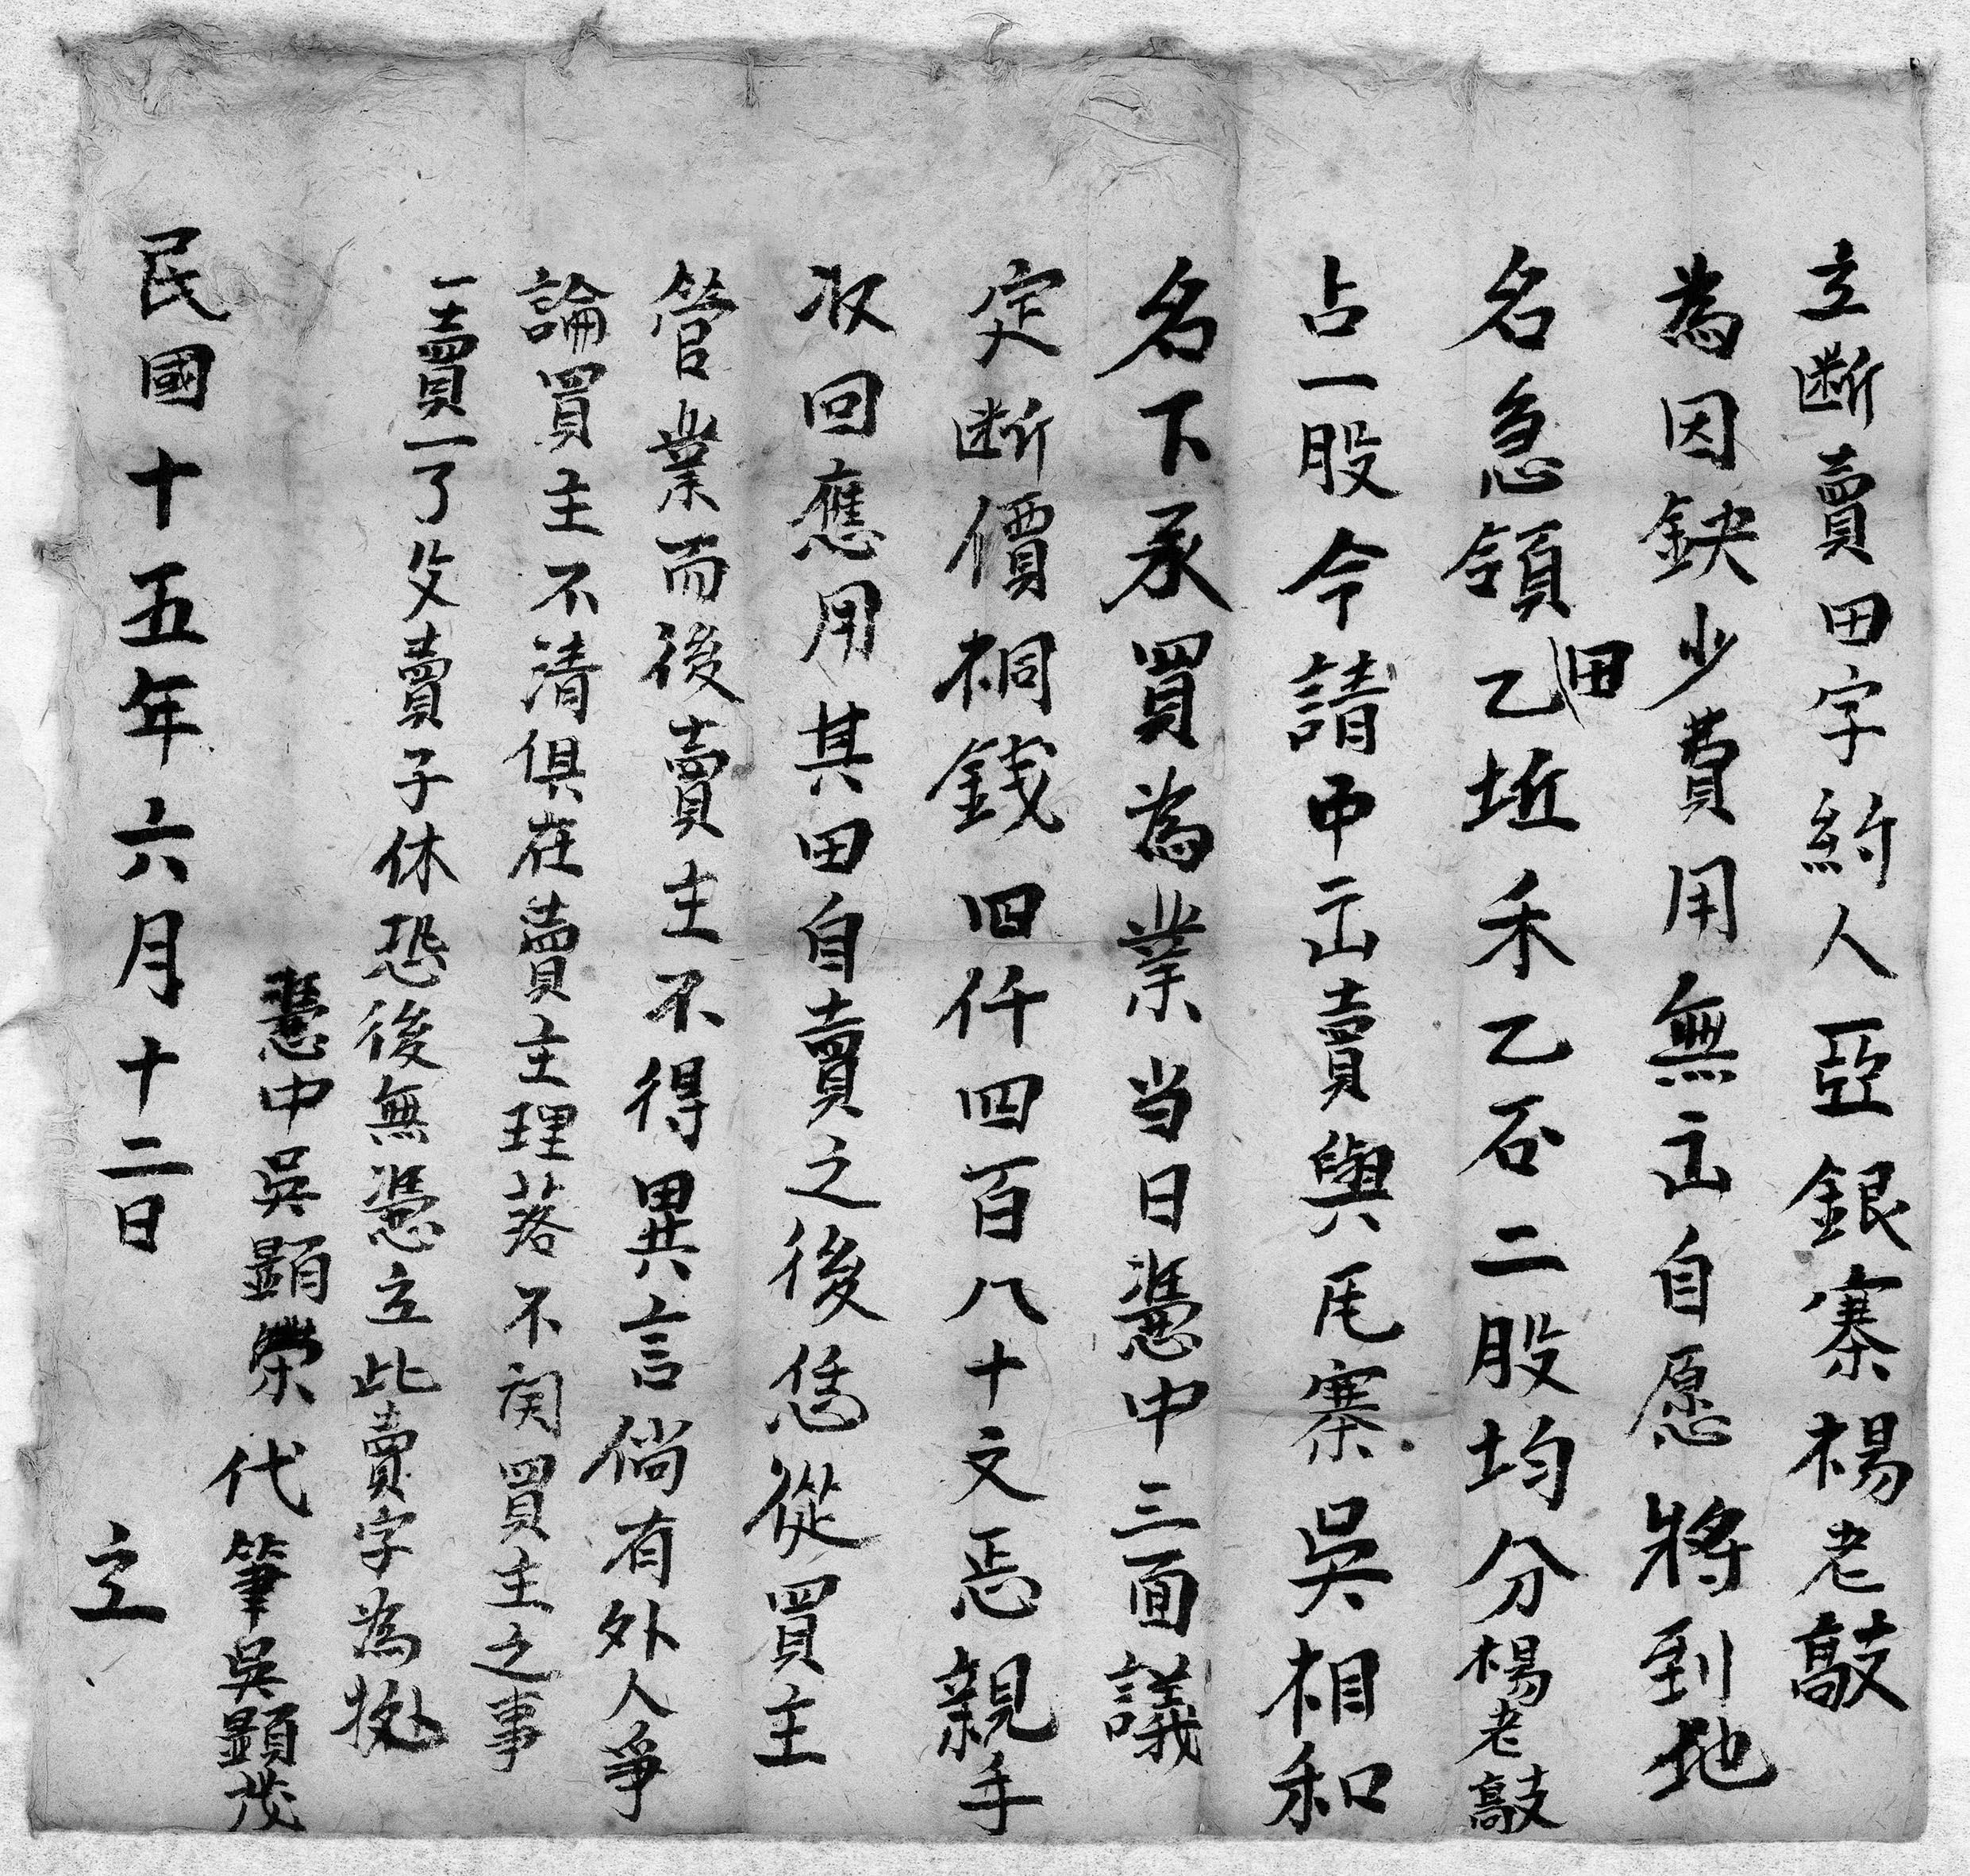 立断賣田字約人亞銀寨楊老敲
為因缺少費用無出自愿將到地
名急領田乙坵禾乙石二股均分楊老敲
占一股今請中出賣與尾寨吳相和
名下承買為業当日憑中三面議
定断價桐銭四仟四百八十文焉親手
收回應用其田自賣之後恁從買主
管業而後賣主不得異言倘有外人爭
論買主不清俱在賣主理落不関買主之事
一賣一了父賣子休恐後無憑立此賣字為拠
憑中吳顕榮代筆吳顕茂
民國十五年六月十二日 立